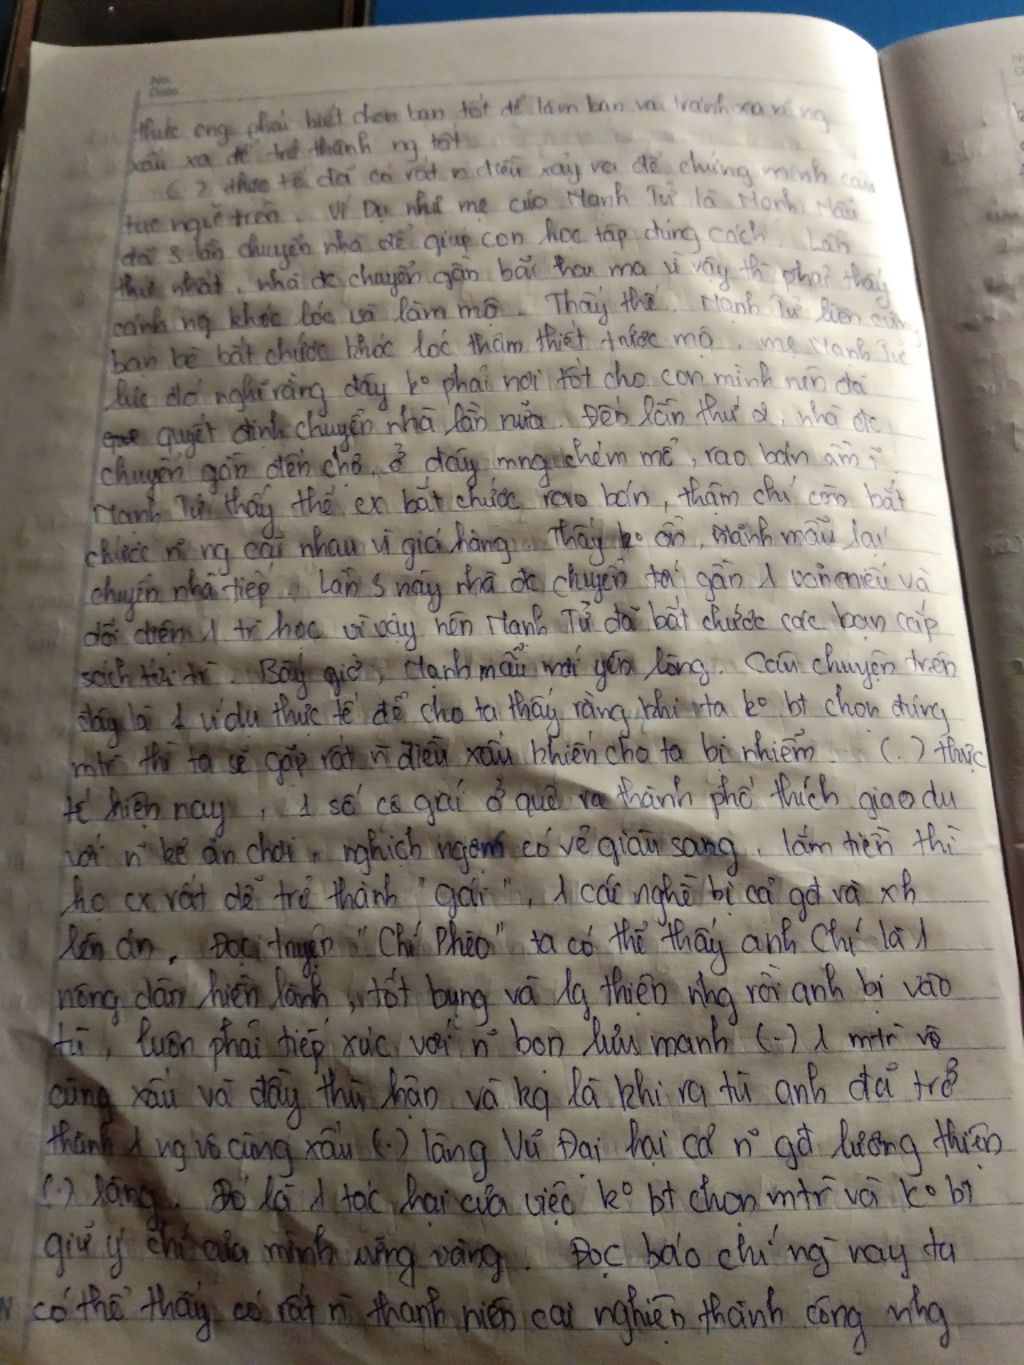 No.
Date
thức cng phải biết chọn bạn tốt để làm bạn và tránh xa n~ ng
xấu xa để trở thành ng tốt.
(.) thực tế đã có rất n` điều xảy ra để chứng minh câu
tục ngữ trên. Ví Dụ như mẹ của Mạnh Tử là Mạnh Mẫu
đã 3 lần chuyển nhà để giúp con học tập đúng cách. Lần
thứ nhất, nhà đc chuyển gần bãi tha ma vì vậy thì phải thấy
cảnh ng khóc lóc và làm mộ. Thấy thế, Mạnh Tử liền cùng
bạn bè bắt chước khóc lóc thảm thiết trước mộ, mẹ Mạnh Tử
lúc đó nghĩ rằng đây k° phải nơi tốt cho con mình nên đã
quyết định chuyển nhà lần nữa. Đến lần thứ 2, nhà đc
chuyển gần đến chợ, ở đấy mng chém mổ, rao bán ầm ĩ.
Mạnh Tử thấy thế cx bắt chước rao bán, thậm chí còn bắt
chước n~ ng cãi nhau vì giá hàng. Thấy k° ổn, Mạnh mẫu lại
chuyển nhà tiếp. Lần 3 này nhà đc chuyển tới gần 1 văn miếu và
đối diện 1 tr` học vì vậy nên Mạnh Tử đã bắt chước các bạn cắp
sách tới tr`. Bây giờ, Mạnh mẫu mới yên lòng. Câu chuyện trên
đây là 1 ví dụ thực tế để cho ta thấy rằng khi ta k° bt chọn đúng
mtr` thì ta sẽ gặp rất n` điều xấu khiến cho ta bị nhiễm. (.) thực
tế hiện nay, 1 số cô gái ở quê ra thành phố thích giao du
với n~ kẻ ăn chơi, nghịch ngợm có vẻ giàu sang, lắm tiền thì
họ cx rất dễ trở thành "gái", 1 cái nghề bị cả gđ và xh
lên án. Đọc truyện "Chí Phèo" ta có thể thấy anh Chí là 1
nông dân hiền lành, tốt bụng và lg thiện nhg rồi anh bị vào
tù, luôn phải tiếp xúc với n~ bọn lưu manh (.) 1 mtr` vô
cùng xấu và đầy thù hận và kq là khi ra tù anh đã trở
thành 1 ng vô cùng xấu (.) làng Vũ Đại hại cả n~ gđ lương thiện
(.) làng. Đó là 1 tác hại của việc k° bt chọn mtr` và k° bt
giữ ý chí của mình vững vàng. Đọc báo chí ng` nay ta
có thể thấy có rất n` thanh niên cai nghiện thành công nhg